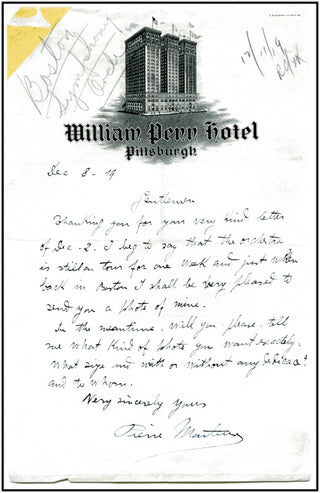 Boston
Symphony
Orch
12/11/19
William Penn Hotel
Pittsburgh
Dec 8 - 19
Gentlemen
Thanking you for your very kind letter
of Dec - 2. I beg to say that the orchestra
is still on tour for one week and just when
back in Boston I shall be very pleased to
send you a photo of mine.
In the meantime. Will you please. tell
me what kind of photo you want exactly.
What size and with or without any dedicace?
and to whom.
Very sincerely yours
Pierre Monteux